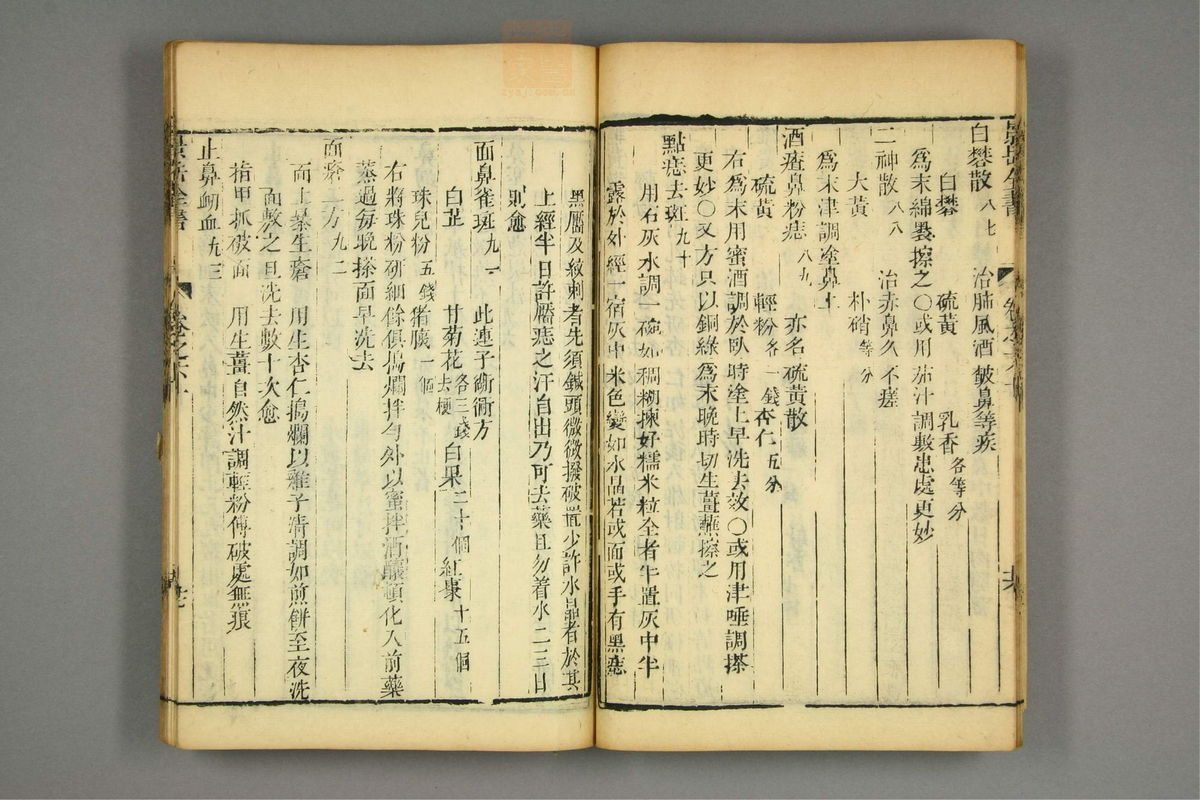 白礬散 八七 治肺風酒皶鼻等疾
白礬 硫黃 乳香 各等分
為末綿裹擦之○或用茄汁調敷患處更妙
二神散 八八 治赤鼻久不瘥
大黃 朴硝 等分
為末津調塗鼻上
酒㾴鼻粉痣 八九 亦名硫黃散
硫黃 輕粉 各一錢 杏仁 五分
右為末用蜜酒調於臥時塗上早洗去效○或用津唾調搽
更妙○又方只以銅綠為末晚時切生薑蘸擦之
點痣去斑 九十
用石灰水調一碗如稠糊揀好糯米粒全者半置灰中半
露於外經一宿灰中米色變如水晶若或面或手有黑痣
黑靨及紋刺者先須鍼頭微微撥破置少許水晶者於其
上經半日許靨痣之汗自出乃可去藥且勿着水二三日
則愈
面鼻雀斑 九一 此連子衚衕方
白芷 甘菊花 各三錢去梗 白果 二十個 紅棗 十五個
珠兒粉 五錢 猪胰 一個
右將珠粉研細餘俱搗爛拌勻外以蜜拌酒釀頓化入前藥
蒸過每晚搽面早洗去
面瘡二方 九二
面上暴生瘡 用生杏仁搗爛以雞子清調如煎餅至夜洗
面敷之旦洗去數十次愈
指甲抓破面 用生薑自然汁調輕粉傅破處無痕
止鼻衂血 九三